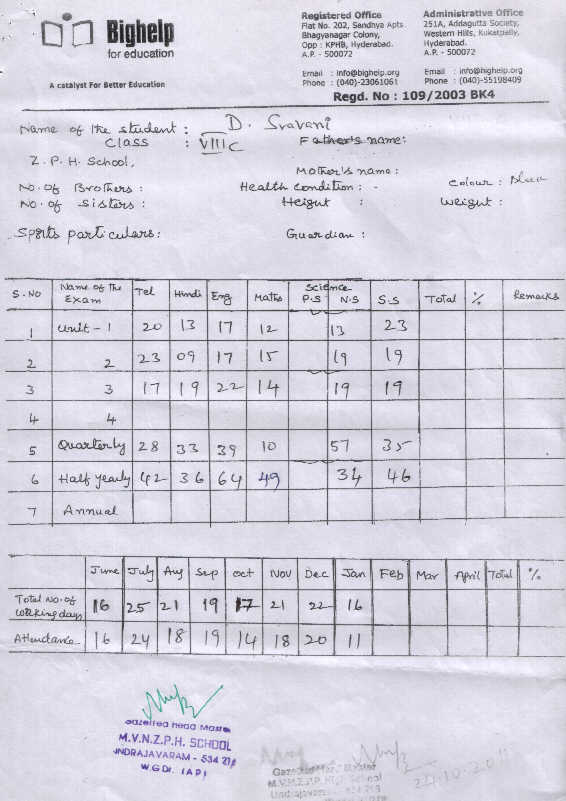 Bighelp
for education
A catalyst For Better Education
Registered Office
Flat No. 202, Sandhya Apts
Bhagyanagar Colony,
Opp : KPHB, Hyderabad.
A.P. - 500072
Email : info@bighelp.org
Phone : (040)-23061061
Administrative Office
251A, Addagutta Society,
Western Hills, Kukatpally,
Hyderabad.
A.P. - 500072
Email : info@bighelp.org
Phone : (040)-55198409
Regd. No : 109/2003 BK4
Name of the student : D. Sravani
Class : VIII C Father's name:
Z. P. H. School,
Mother's name :
No. of Brothers : Health Condition : - Colour :
No. of Sisters : Height : Weight :
Sports particulars: Guardian :
S.NO Name of the Exam Tel Hindi Eng Maths Science P.S N.S S.S Total % Remarks
1 Unit - 1 20 13 17 12 13 23
2 2 23 09 17 15 19 19
3 3 17 19 22 14 19 19
4 4
5 Quarterly 28 33 39 10 57 35
6 Half Yearly 42 36 64 49 34 46
7 Annual
June July Aug Sep Oct Nov Dec Jan Feb Mar April Total %
Total No. of Working days 16 25 21 19 17 21 22 16
Attendance 16 24 18 19 14 18 20 11
Gazetted Head Master
M.V.N.Z.P.H. SCHOOL
UNDRAJAVARAM - 534 216
W.G.Dt. (AP)
M.V.N.Z.P.H. School